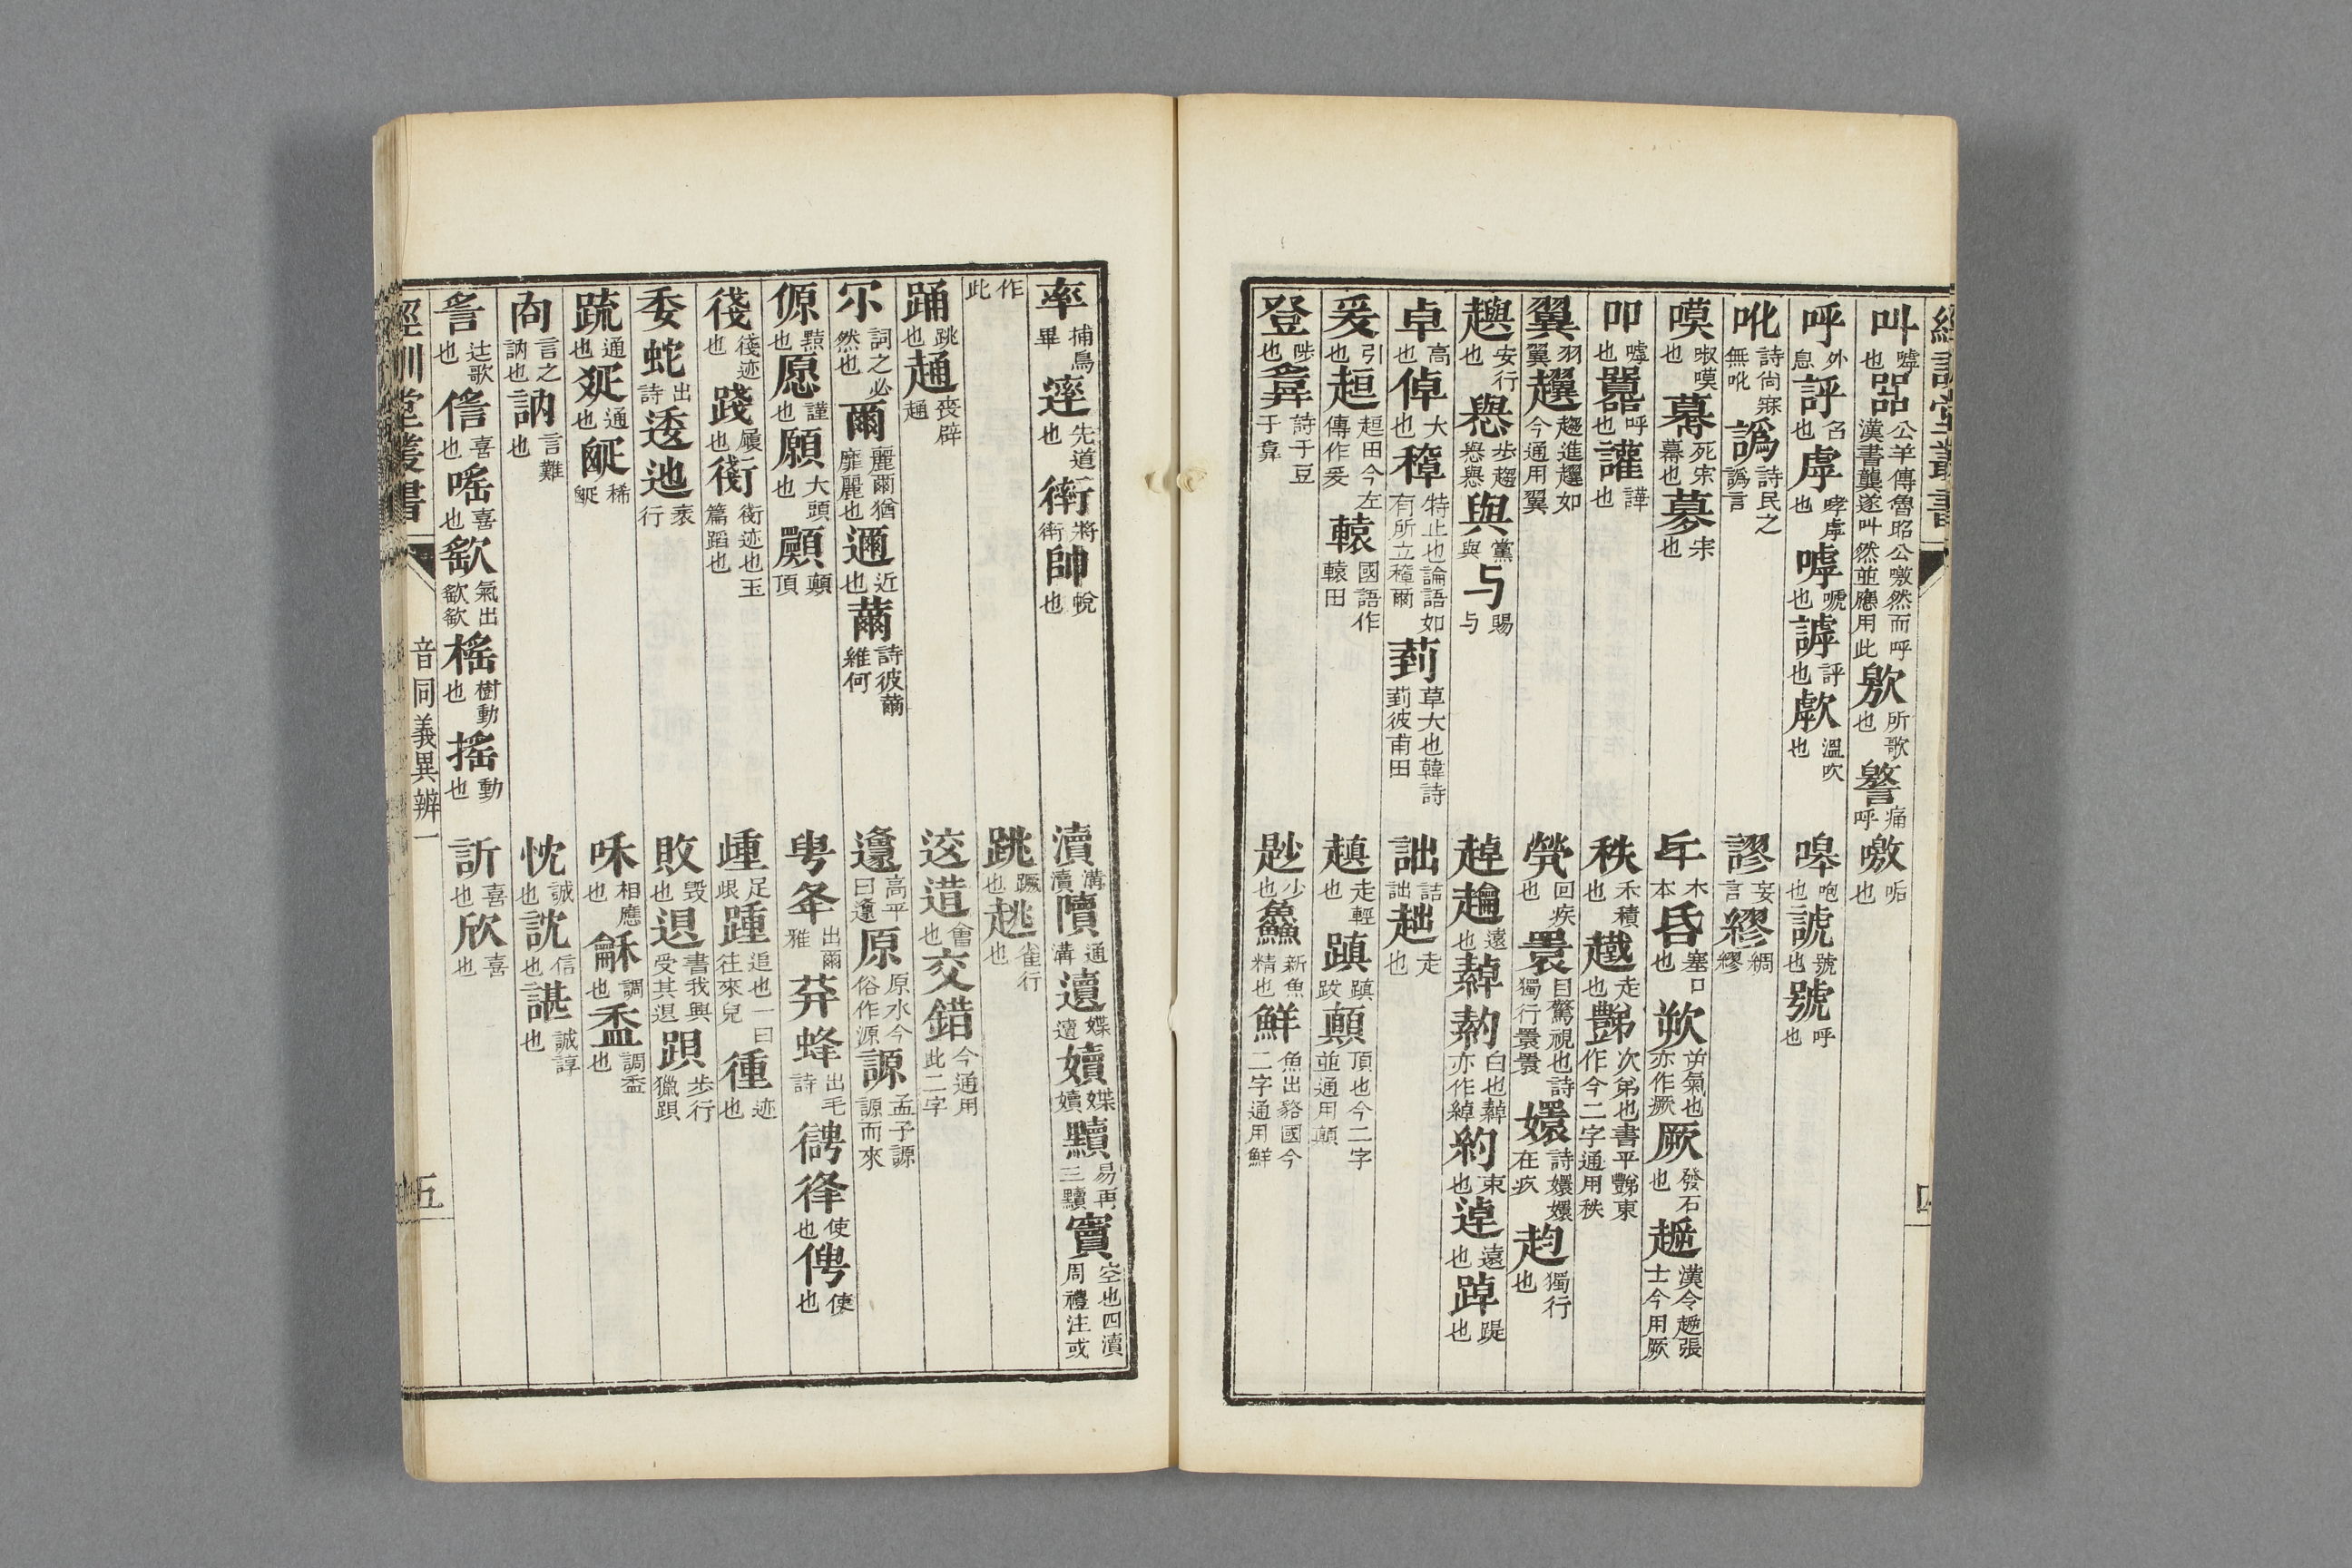 叫嘑也㗊公羊傳魯昭公噭然而呼漢書龔遂叫然並應用此敫所歌也警痛呼噭吼也
呼外息評召也虖哮虖也嘑唬也謼評也歑溫吹也嘷咆也諕號也號呼也
吪詩尚寐無吪譌詩民之譌言謬妄言繆綢繆
嘆㖡嘆也募死宗募也夢宋也氒木本昏塞口也欮屰氣也亦作瘚厥發石也趣漢令趣張士今用厥
吅嘑也嚻呼也讙譁也秩禾積也趩走也豑次弟也書平豑東作今二字通用秩
翼羽翼趯趨進趯如今通用翼煢回疾也睘目驚視也詩獨行睘睘嬛詩嬛嬛在疚赹獨行也
趣安行也懇步趨懇懇與黨與与賜与趠䠣遠也䓬䓬白也䓬亦作綽約束也逴遠也踔踶也
卓高也倬大也稦特止也論語如有所立稦爾菿草大也韓詩菿彼甫田詘詰詘趉走也
爰引也趄趄田今左傳作爰轅國語作轅田趚走輕也蹎蹎跋顛頂也今二字並通用顛
登陟也豋詩于豆于豋尟少也鱻新魚精也鮮魚出貉國今二字通用鮮
經訓堂叢書
率捕鳥畢逹先道也衛將衛帥帨也瀆溝瀆隫通溝遺媟遺嬻媟嬻黷易再三黷竇空也四瀆周禮注或
作此跳蹶也趒雀行也
踊跳也通喪辟通䢒造會也交錯今通用此二字
尒詞之必然也爾麗爾猶靡麗也邇近也薾詩彼薾維何邍高平曰邍原原水今俗作源謜孟子謜而來
傆黠也愿謹也願大頭也顚顛頂甹夆出爾雅荓蜂出毛詩德徰使也俜使也
俴俴迹也踐履也衖衖迹也玉篇蹈也歱足跟踵追也一曰往來皃徸迹也
委蛇出詩逶迆衺行敗毁也退書我興受其退跟步行獵跟
疏通也㛈通也䟽稀䟽咊相應也龢調也盉調盉也
㕯言之訥也訥言難也忱誠也訦信也諶誠諄也
䚻辻歌也㒔喜也嗂喜也歙氣出歙歙榣樹動也搖動也訢喜也欣喜也
經訓堂叢書 音同義異辨一 五